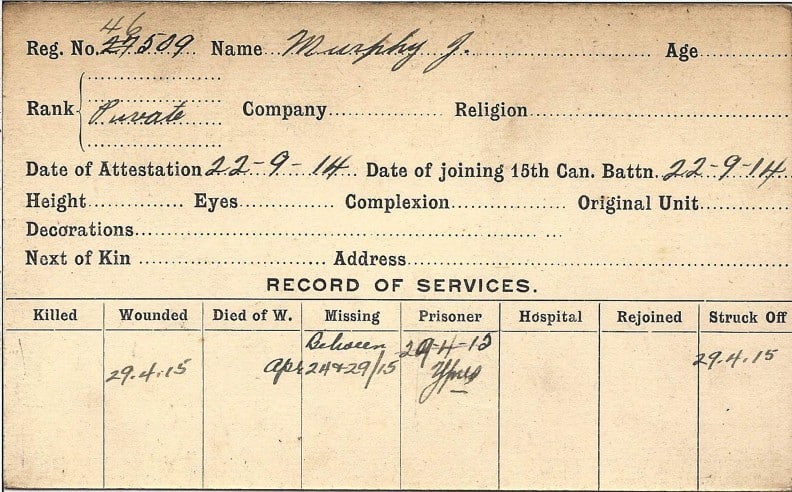 46
Reg. No. 27509 Name Murphy J. Age
Rank Private Company Religion
Date of Attestation 22-9-14 Date of joining 15th Can. Battn. 22-9-14
Height Eyes Complexion Original Unit
Decorations
Next of Kin Address
RECORD OF SERVICES.
Killed Wounded Died of W. Missing Prisoner Hospital Rejoined Struck Off
Between 29-4-15 29.4.15
29.4.15 Apr 24 & 29/15 Ypres